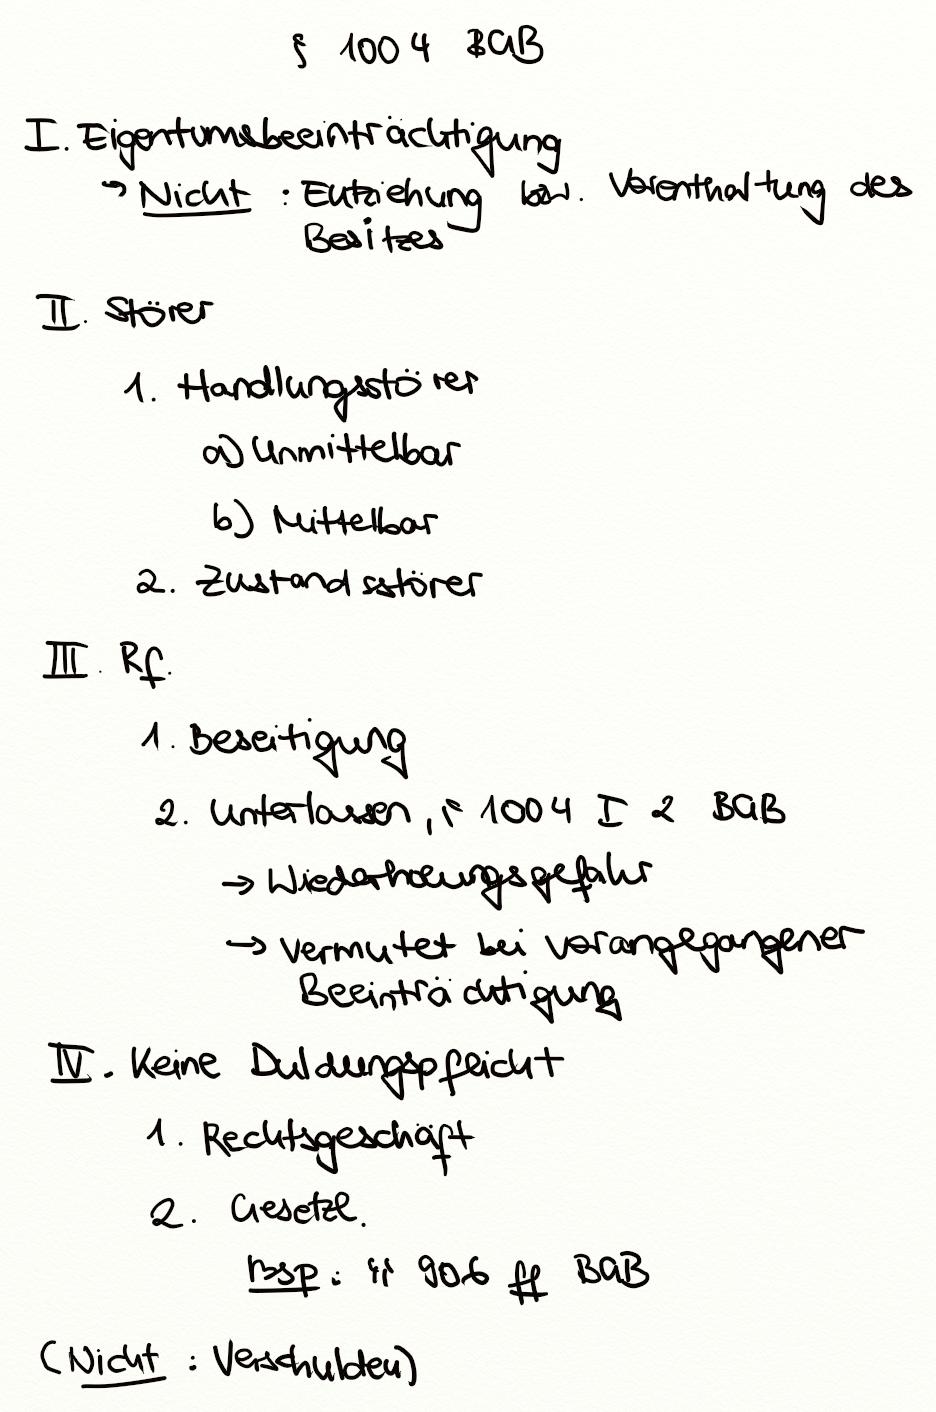 § 1004 BGB
I. Eigentumsbeeinträchtigung
→ Nicht : Entziehung bzw. Vorenthaltung des
Besitzes
II. Störer
1. Handlungsstörer
a) Unmittelbar
b) Mittelbar
2. Zustandsstörer
III. Rf.
1. Beseitigung
2. Unterlassen, § 1004 I 2 BGB
→ Wiederholungsgefahr
→ Vermutet bei vorangegangener
Beeinträchtigung
IV. Keine Duldungspflicht
1. Rechtsgeschäft
2. Gesetzl.
Bsp.: §§ 906 ff BGB
(Nicht : Verschulden)